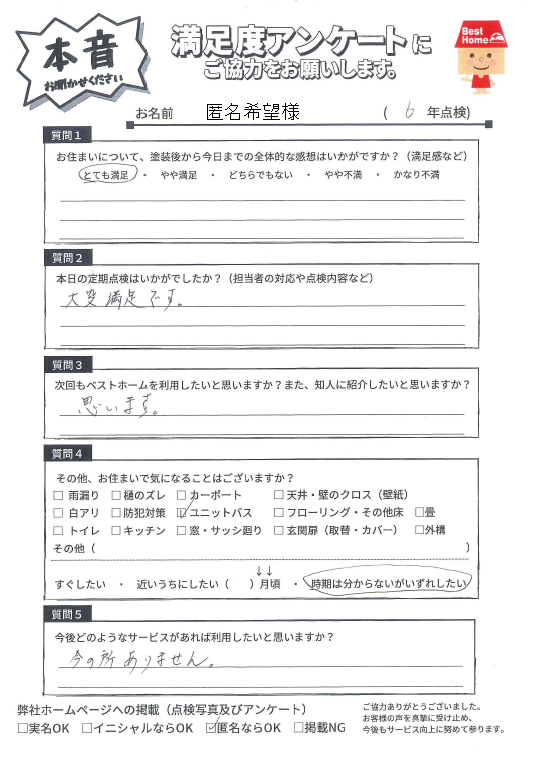 本音
お聞かせください
満足度アンケートに
ご協力をお願いします。
Best Home
お名前 匿名希望様 ( 6 年点検)
質問1
お住まいについて、塗装後から今日までの全体的な感想はいかがですか?(満足感など)
とても満足 ・ やや満足 ・ どちらでもない ・ やや不満 ・ かなり不満
質問2
本日の定期点検はいかがでしたか?(担当者の対応や点検内容など)
大変満足です。
質問3
次回もベストホームを利用したいと思いますか?また、知人に紹介したいと思いますか?
思います。
質問4
その他、お住まいで気になることはございますか?
□ 雨漏り □樋のズレ □ カーポート □天井・壁のクロス(壁紙)
□ 白アリ □防犯対策 ☑ ユニットバス □フローリング・その他床 □畳
□ トイレ □キッチン □窓・サッシ廻り □玄関扉(取替・カバー) □外構
その他( )
↓↓
すぐしたい ・ 近いうちにしたい( )月頃 ・ 時期は分からないがいずれしたい
質問5
今後どのようなサービスがあれば利用したいと思いますか?
今の所ありません。
弊社ホームページへの掲載(点検写真及びアンケート)
□実名OK □イニシャルならOK ☑匿名ならOK □掲載NG
ご協力ありがとうございました。
お客様の声を真摯に受け止め、
今後もサービス向上に努めて参ります。